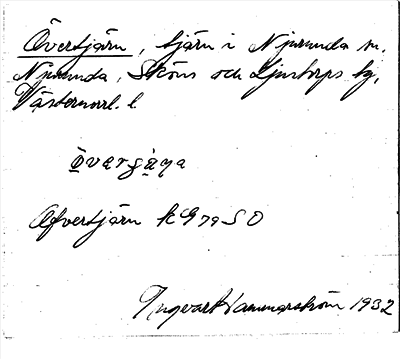 Övertjärn, tjärn i Njurunda sn.
Njurunda, Sköns och Ljustorps tg,
Västernorrl. l
Övargàṇa
Öfvertjärn kG 79 SO
Ingvar Hammarström 1932